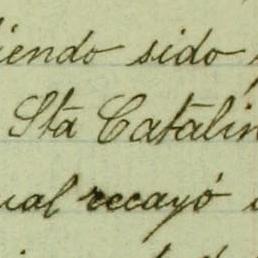 iendo sido
Sta Catalin
ual recayó